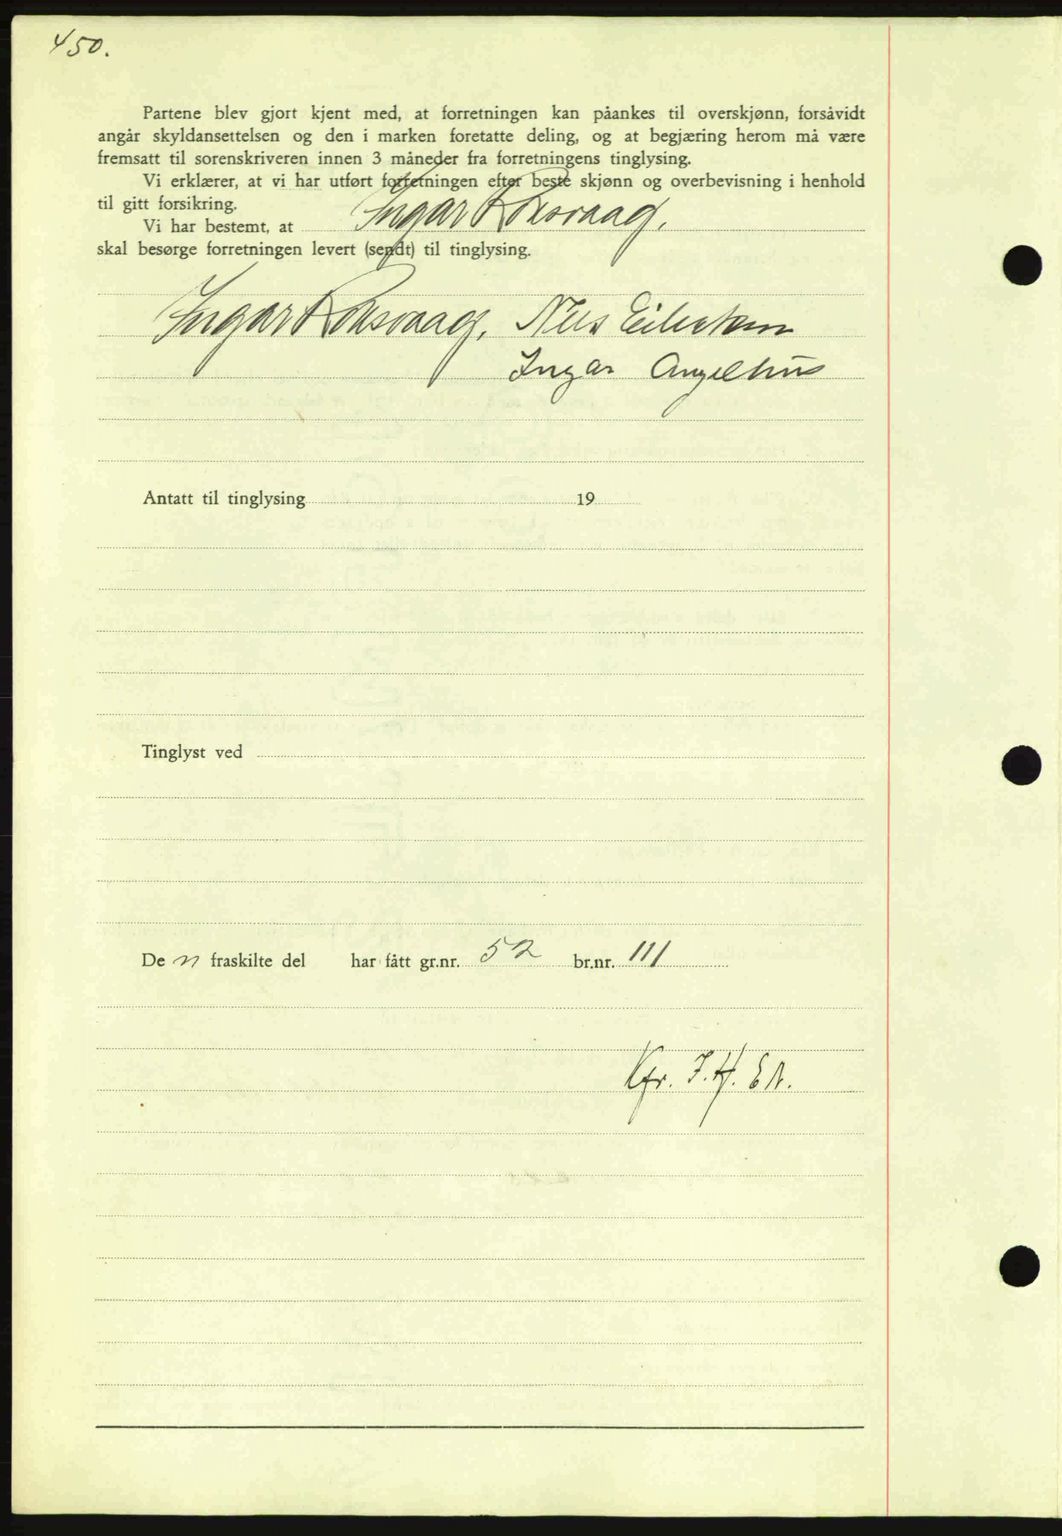 450.
Partene blev gjort kjent med, at forretningen kan påankes til overskjønn, forsåvidt
angår skyldansettelsen og den i marken foretatte deling, og at begjæring herom må være
fremsatt til sorenskriveren innen 3 måneder fra forretningens tinglysing.
Vi erklærer, at vi har utført forretningen efter beste skjønn og overbevisning i henhold
til gitt forsikring.
Vi har bestemt, at Ingar Roksvaag.
skal besørge forretningen levert (sendt) til tinglysing.
Ingar Roksvaag. Nils
Ingar Angelhus
Antatt til tinglysing 19
Tinglyst ved
De n fraskilte del har fått gr.nr. 52 br.nr. 111
Kfr. J. H. EN.